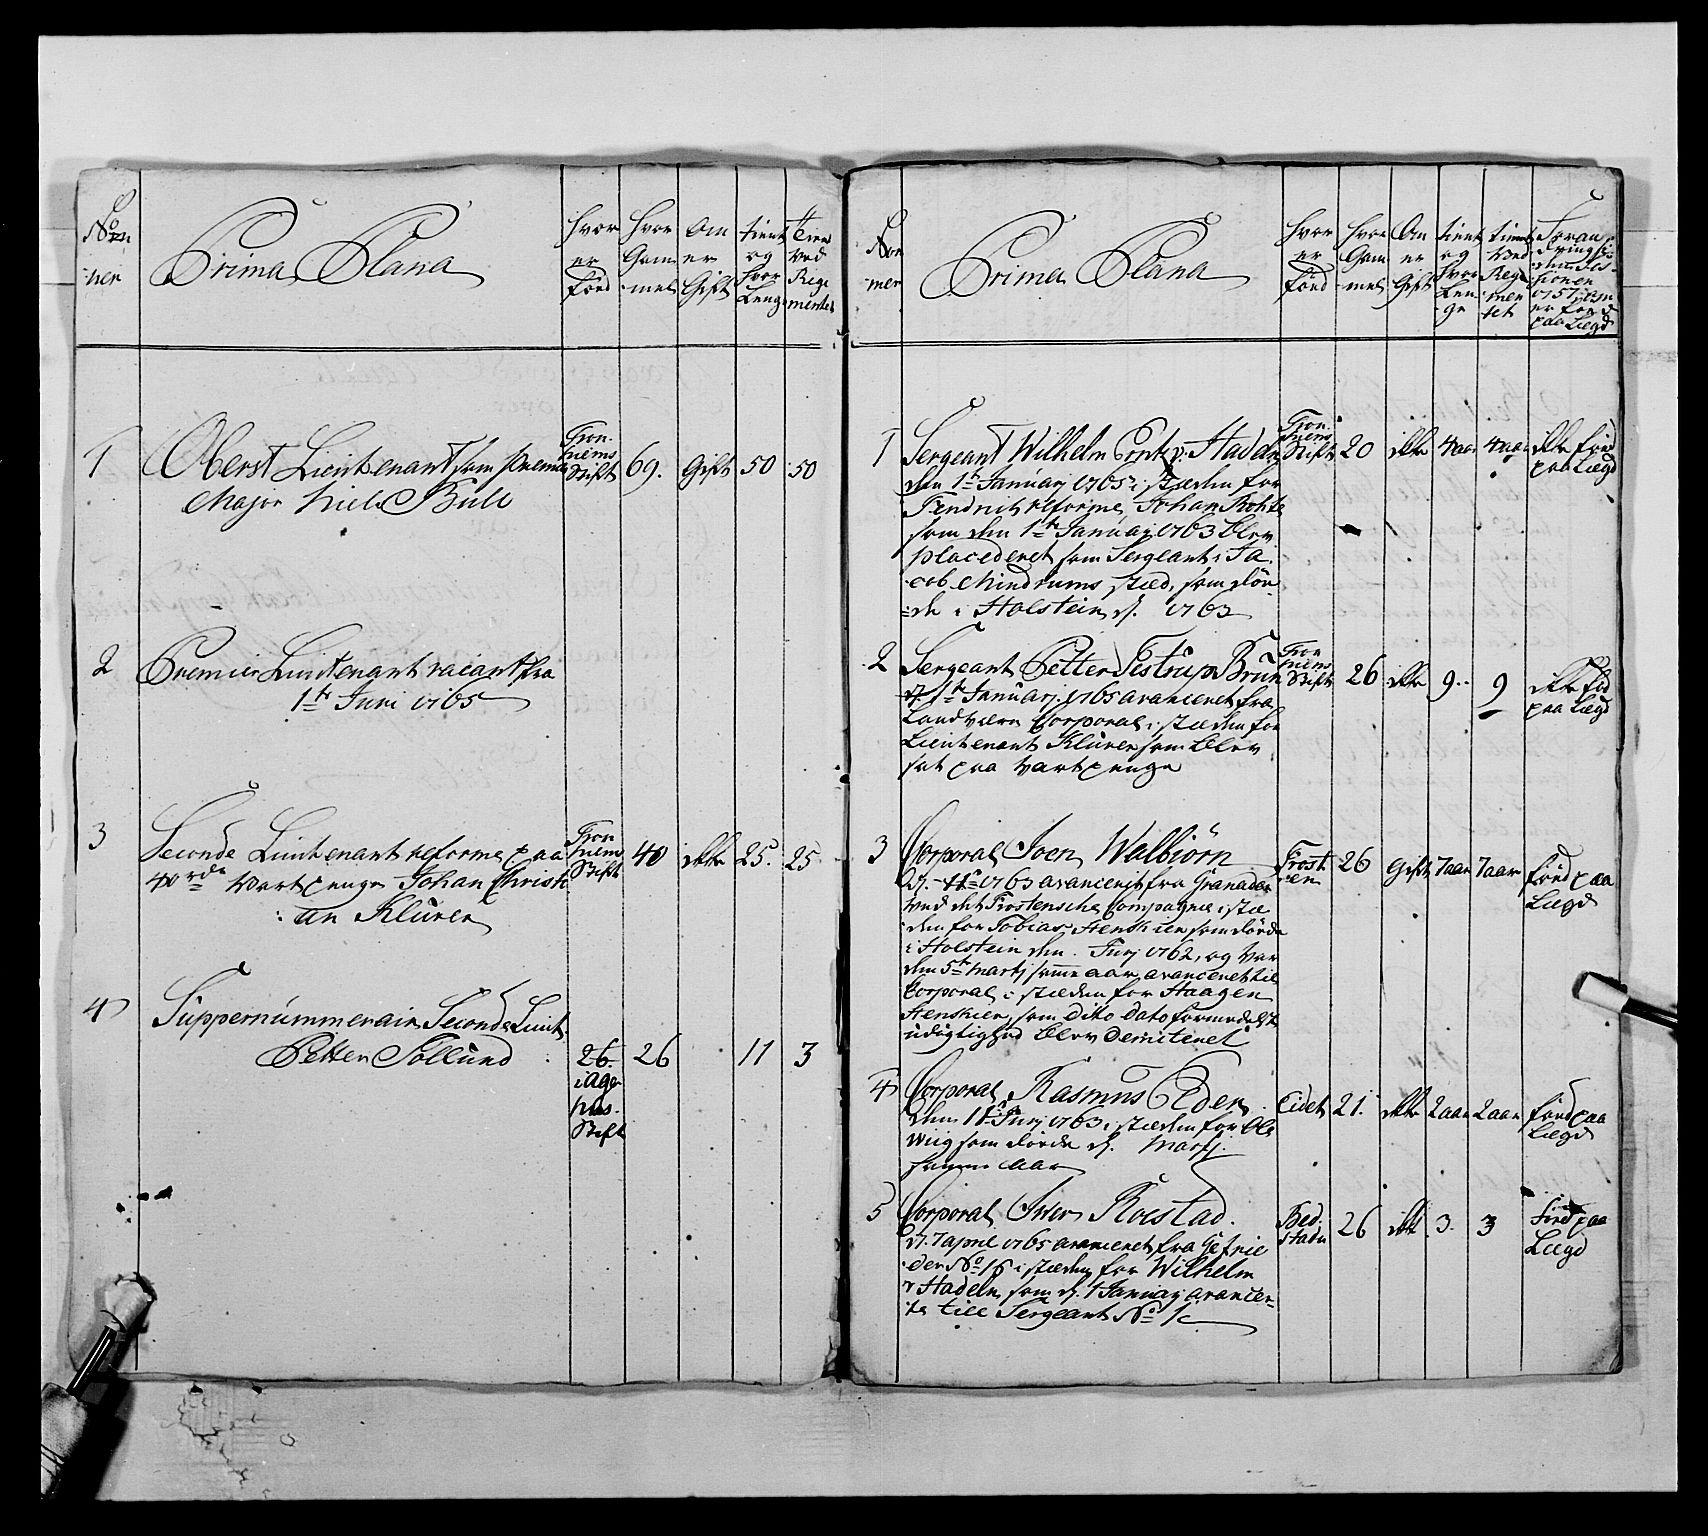 No
mer
Prima Plana
hvor
er
föed
hvor
Gam
mel
Om
er
Gift
tient
og
hvor
Lenge
Tient
ved
Regi
mentet
1
Oberst Lieutenant som premier
Major Niels Bull
Tron
hiems
Stift
69.
Gift
50
50
2
Premier Lieutenant vacant fra
1te Juni 1765
3
Seconde Lieutenant reforme paa
40 rdr Vartpenge Johan Christi
an Klüver
Tron
hiems
Stift
40
ikke
25.
25
4
Suppernümmerair Seconde Lieut.
Petter Sollund
26
i Ager
huus
Stift
26
11
3
Nom
mer
Prima Plana
hvor
er
föed
hvor
Gam
mel
Om
er
Gift
tient
og
hvor
Len
ge
tient
ved
Regi
men
tet
er föed
paa Lægd
1
Sergeant Wilhelm v. Hadeln
den 1te Januarj 1765 i stæden for
Fendrich reforme Johan
som den 1te Januarj 1763 blev
placederet som Sergeant i Ja
cob Mindrums stæd, som döe
de i Holstein d. 1763
Tron
hiems
Stift
20
ikke
4 aar
4 aar
ikke föed
paa Lægd
2
Sergeant Petter Testrup Brün
d. 1te Januarj 1765 avanceret fra
Landværn Corporal i stæden for
Lieutenant Klüver som blev
sat paa Vartpenge
Tron
hiems
Stift
26
ikke
9.
9
ikke föed
paa Lægd
3
Corporal Joen Walbiörn
d. 1763 avanceret fra Granadeer
ved det Frostenske Compagnie i stæ
den for Tobias Henskien som döde
i Holstein den Junj 1762, og var
den 5te Martj samme aar avanceret til
Corporal i stæden for Haagen
Henskien, som dito dato formedelst
udögtighed blev demiteret
Frost
en
26
Gift
7 aar
7 aar
föed paa
Lægd
4
Corporal Rasmus Eden
den 11te Junj 1763 i stæden for Ole
Wiig som döde d. Martj
samme aar
Eidet
21.
ikke
2 aar
2 aar
föed paa
Lægd
5
Corporal Iver Roestad.
d. 7 april 1765 avanceret fra Gefrie
der No 16 i stæden for Wilhelm
v Hadeln, som d. 1 Januarj avancer
te till Sergeant No 1
Bed
stadn
26
ikke
3.
3
föed paa
Lægd